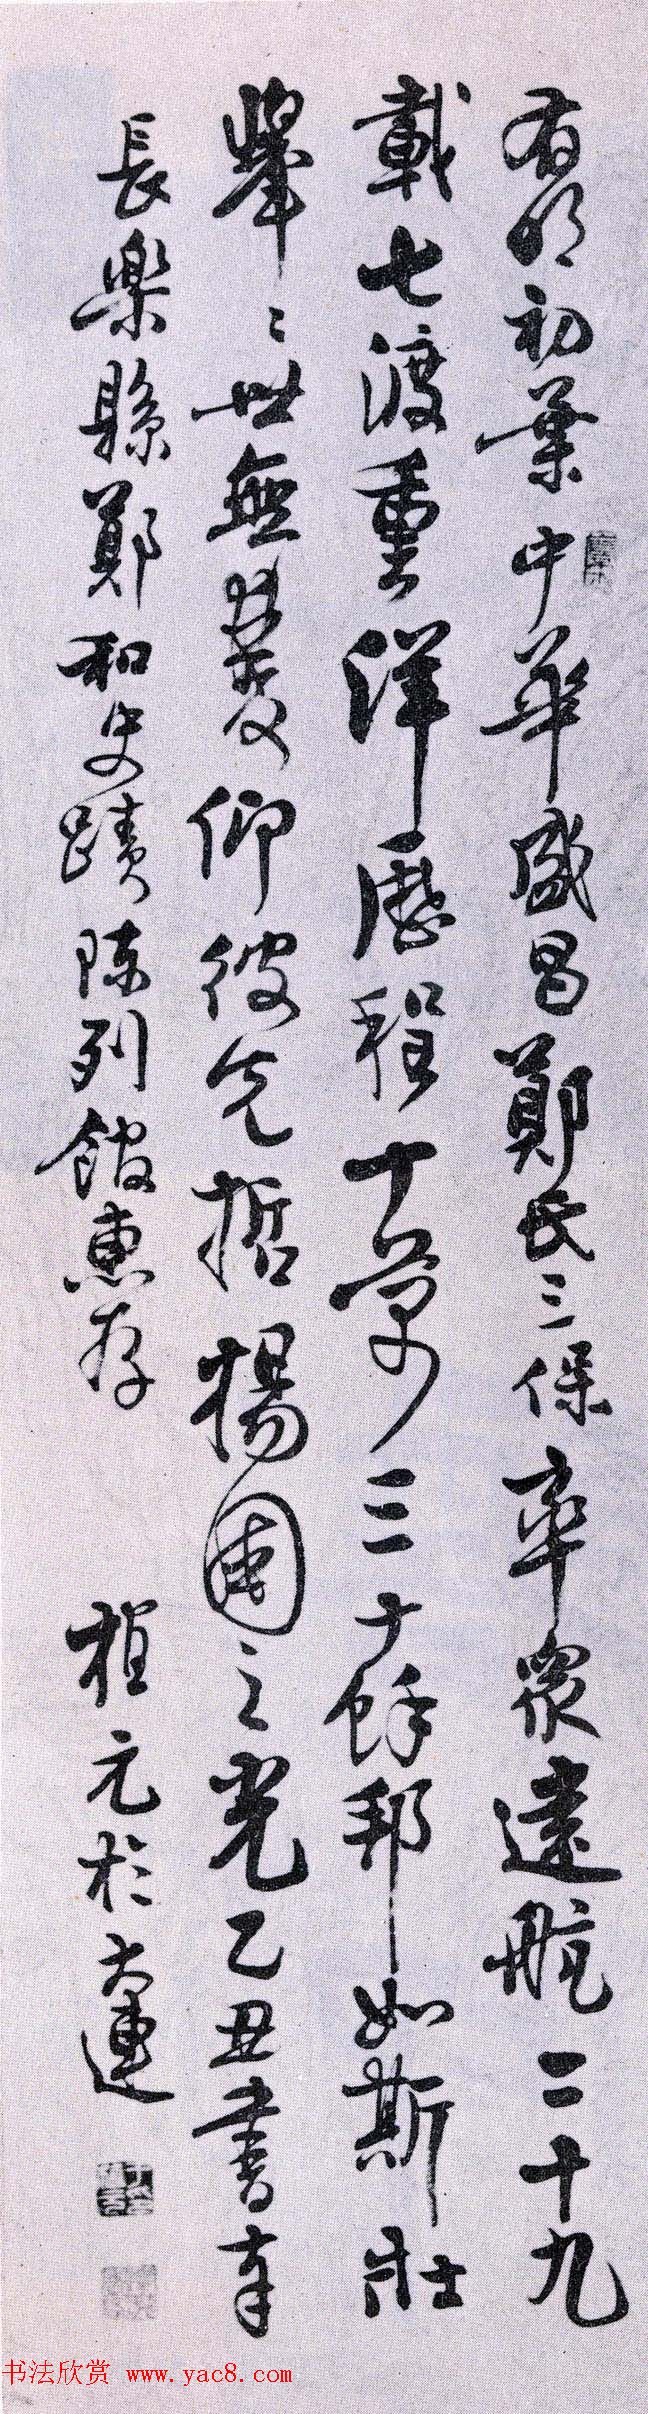 有明初葉中華盛昌鄭氏三保率眾遠航二十九
載七渡重洋歷程十萬三十餘邦如斯壯
舉舉世無雙仰彼先哲揚國之光乙丑書奉
長樂縣鄭和史蹟陳列館惠存
桓元於大連
书法欣赏 www.yac8.com